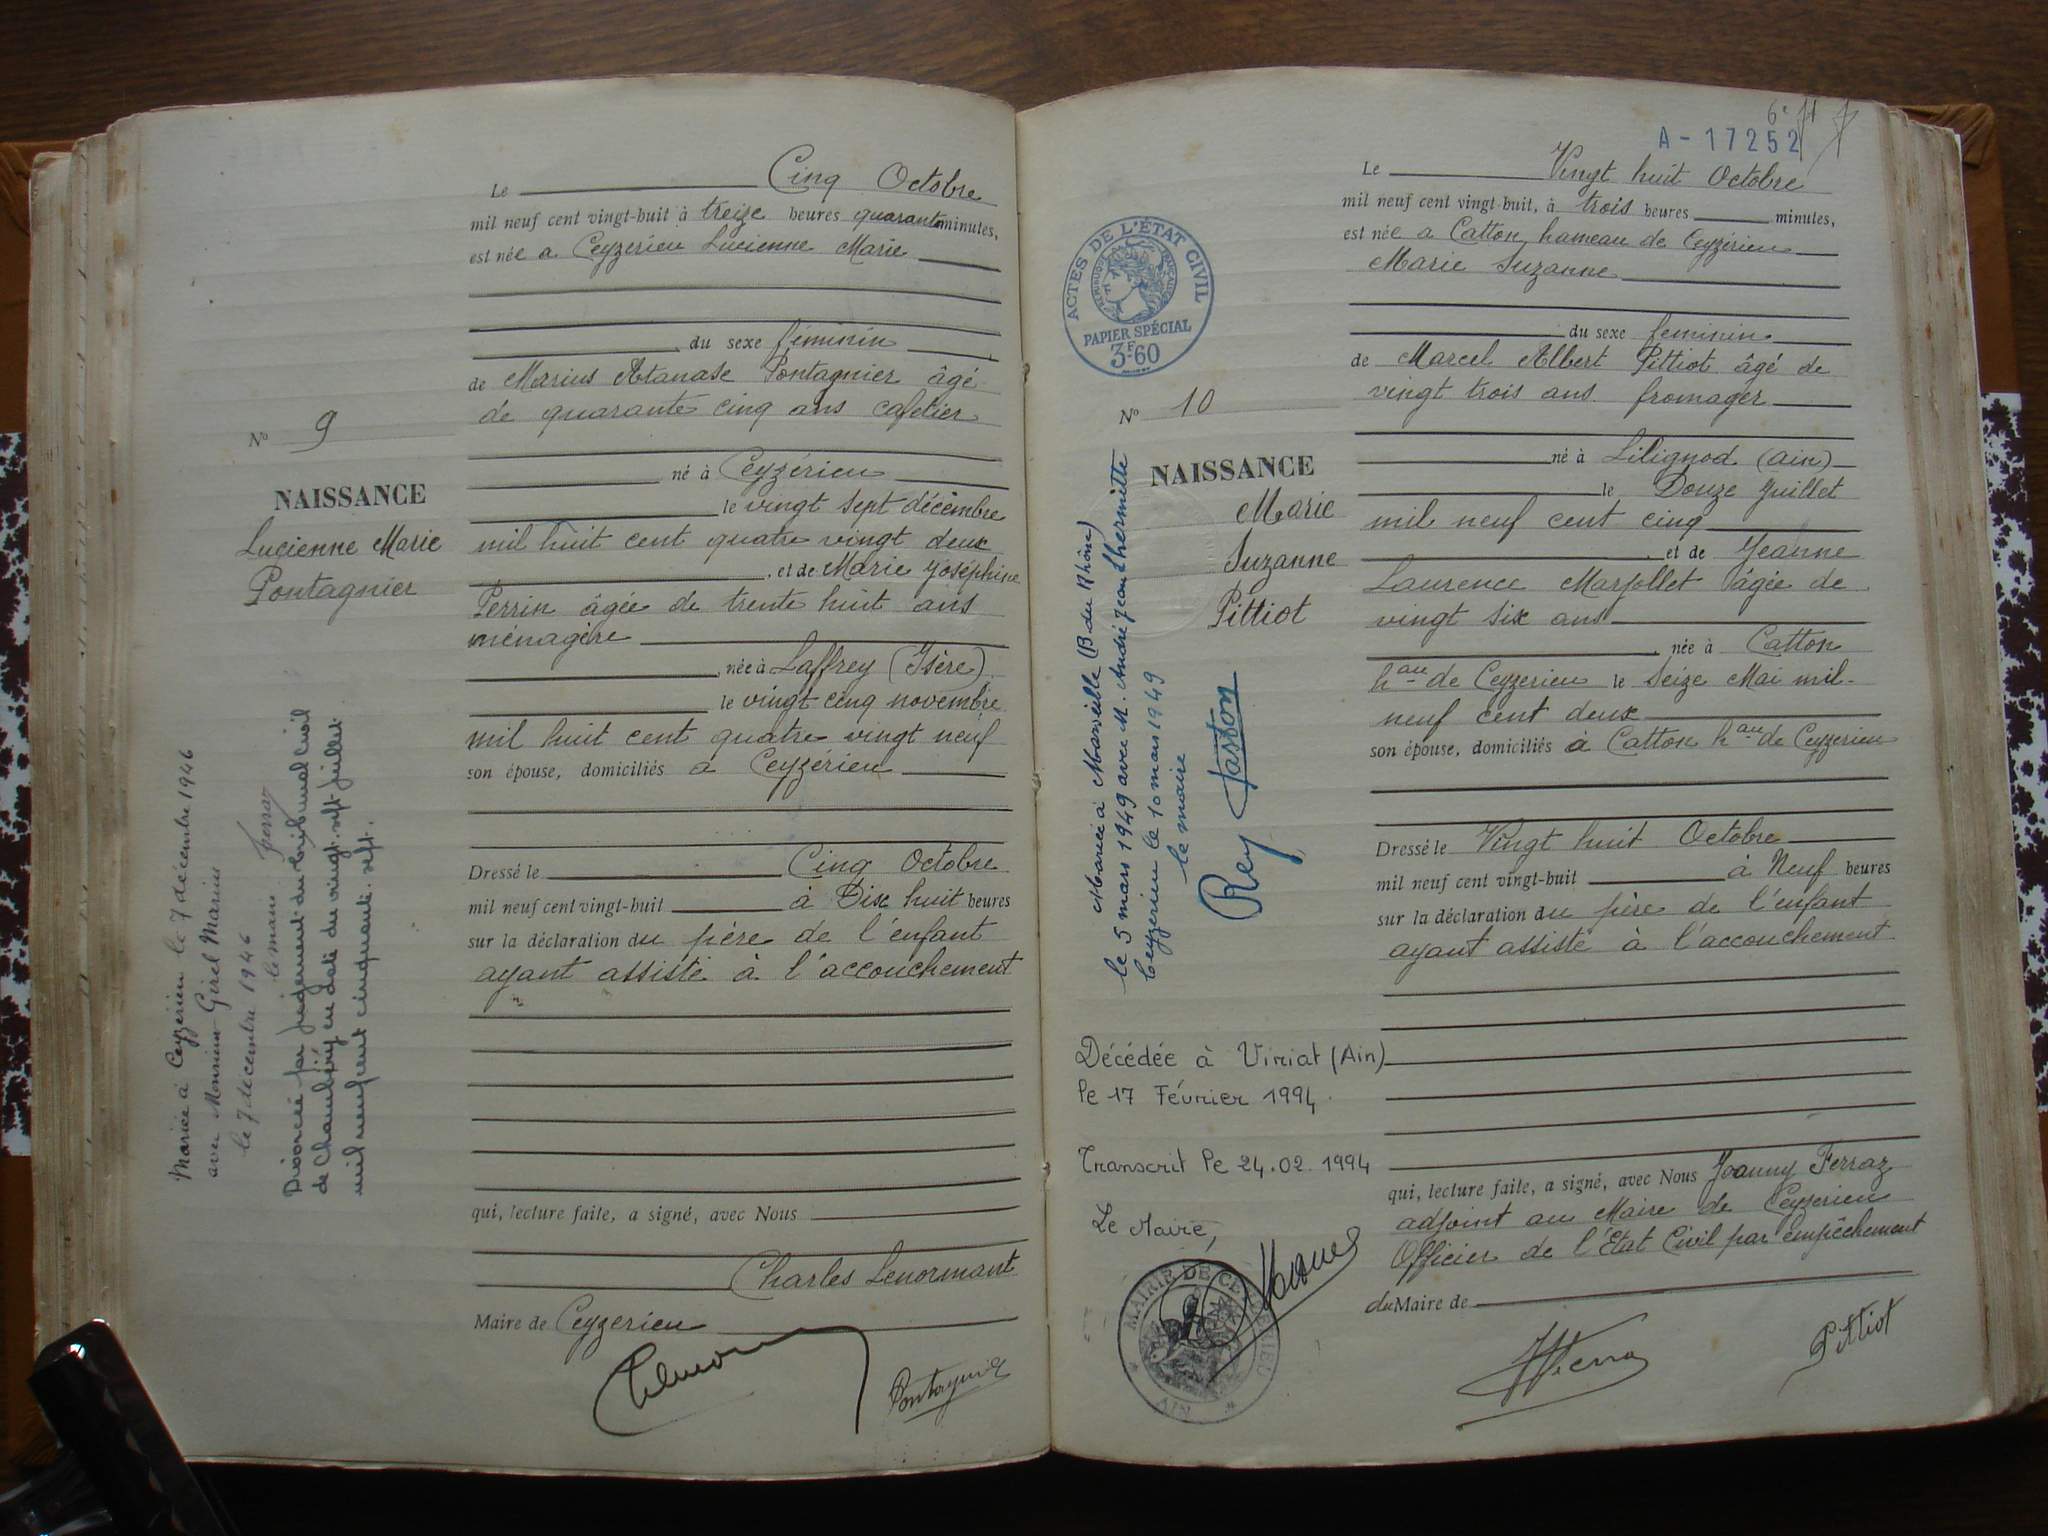 Le Cinq Octobre
mil neuf cent vingt-huit à treize heures quarante minutes,
est née a Ceyzerieu Lucienne Marie
du sexe féminin
de Marius Atanase Pontagnier âgé
de quarante cinq ans cafetier
né à Ceyzérieu
le vingt sept décembre
mil huit cent quatre vingt deux
, et de Marie Joséphine
Perrin âgée de trente huit ans
ménagère
, née à Laffrey (Isère)
le vingt cinq novembre
mil huit cent quatre vingt neuf
son épouse, domiciliés a Ceyzérieu
Dressé le Cinq Octobre
mil neuf cent vingt-huit à Dix huit heures
sur la déclaration du père de l'enfant
ayant assisté à l'accouchement
qui, lecture faite, a signé, avec Nous
Charles Lenormant
Maire de Ceyzerieu
Pontagnier
N° 9
NAISSANCE
Lucienne Marie
Pontagnier
Mariée à Ceyzérieu le 7 décembre 1946
avec Monsieur Girel Marius
le 7 décembre 1946
le maire
Ferraz
Divorcée par jugement du tribunal civil
de Chambéry en date du vingt-sept juillet
mil neuf cent cinquante-sept.
A-17252
Le Vingt huit Octobre
mil neuf cent vingt-huit, à trois heures minutes,
est née a Catton, hameau de Ceyzérieu
Marie Suzanne
du sexe feminin
de Marcel Albert Pittiot âgé de
vingt trois ans fromager
né à Lilignod (Ain)
le Douze Juillet
mil neuf cent cinq
et de Jeanne
Laurence Marjollet âgée de
vingt six ans
, née à Catton
hau de Ceyzerieu le Seize Mai mil-
neuf cent deux
son épouse, domiciliés à Catton hau de Ceyzerieu
Dressé le Vingt huit Octobre
mil neuf cent vingt-huit à Neuf heures
sur la déclaration du père de l'enfant
ayant assisté à l'accouchement
qui, lecture faite, a signé, avec Nous Joanny Ferraz
adjoint au Maire de Ceyzerieu
Officier de l'Etat Civil par empêchement
du Maire de
Pittiot
ACTES DE L'ÉTAT CIVIL
RÉPUBLIQUE FRANÇAISE
PAPIER SPÉCIAL
3F.60
N° 10
NAISSANCE
Marie
Suzanne
Pittiot
Mariée à Marseille (B du Rhône)
le 5 mars 1949 avec M. André Jean Lhermitte
Ceyzerieu le 10 mars 1949
le maire
Rey Gaston
Décédée à Viriat (Ain)
le 17 Février 1994.
Transcrit le 24.02.1994
Le Maire,
MAIRIE DE CEYZERIEU
AIN